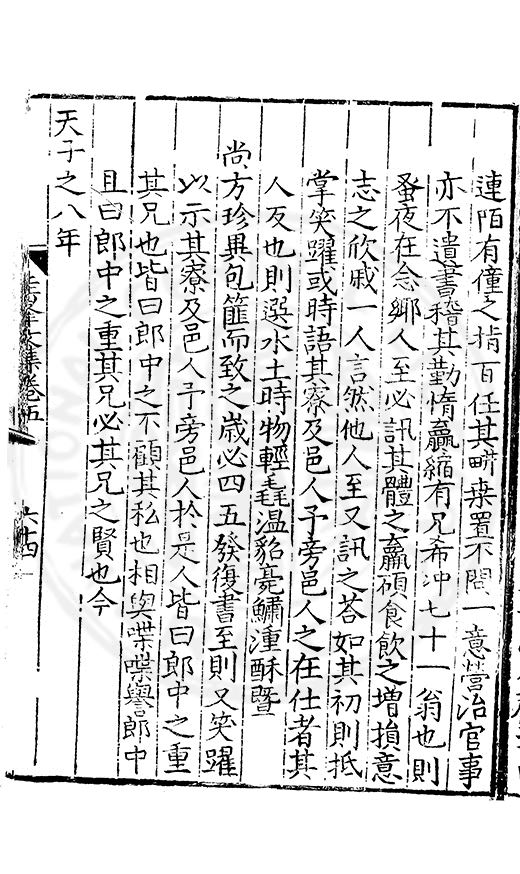 連陌有僮之指百任其畊桒置不問一意營治官事
亦不遺書稽其勤惰贏縮有兄希冲七十一翁也則
蚤夜在念鄉人至必訊其體之羸碩食飲之増損意
志之欣戚一人言然他人至又訊之荅如其初則抵
掌笑躍或時語其寮及邑人予旁邑人之在仕者其
人反也則選水土時物輕毳温貂亮鱐湩酥暨
尚方珎異包篚而致之歳必四五發復書至則又笑躍
以示其寮及邑人予旁邑人於是人皆曰郎中之重
其兄也皆曰郎中之不顧其私也相與喋喋譽郎中
且曰郎中之重其兄必其兄之賢也今
天子之八年
文集卷五
六十四